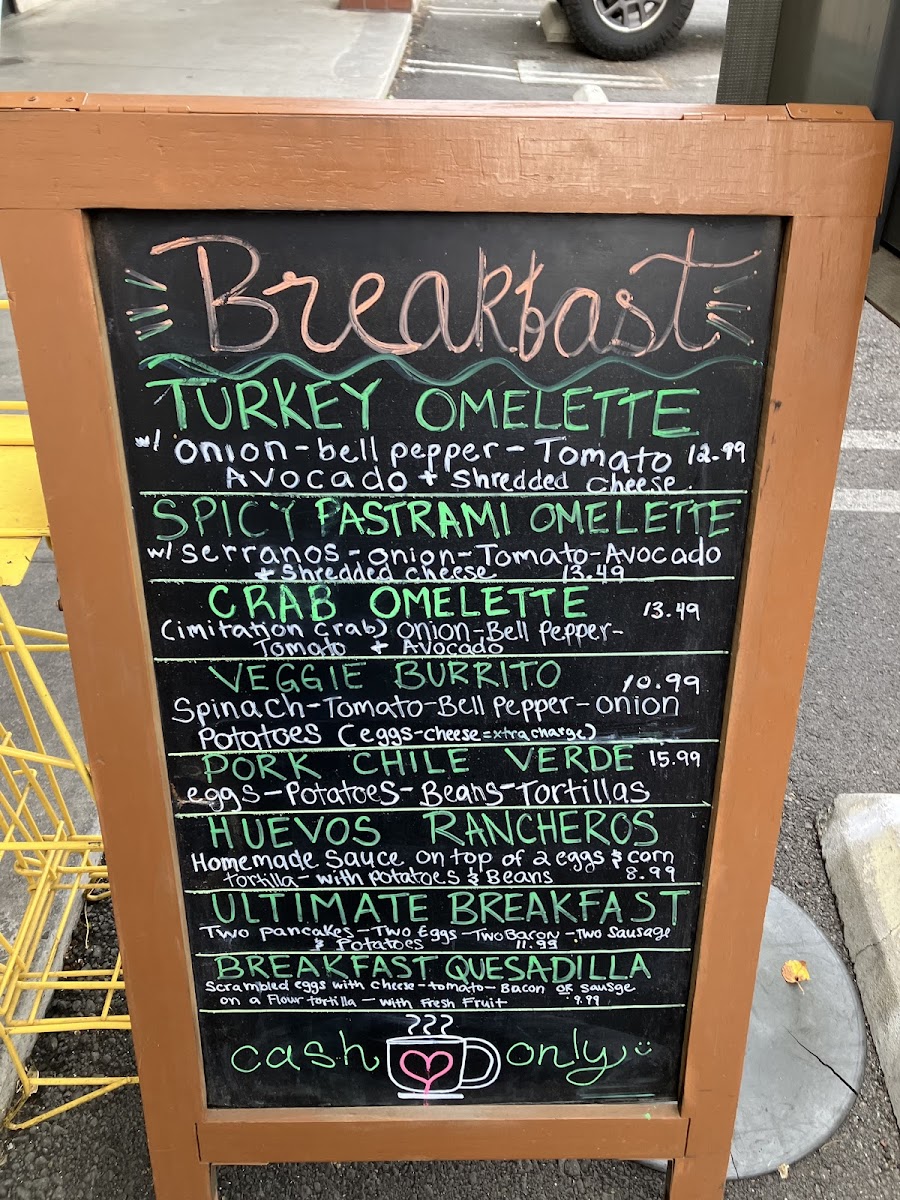 Breakfast
TURKEY OMELETTE
w/ onion-bell pepper-Tomato 12.99
Avocado + Shredded cheese.
SPICY PASTRAMI OMELETTE
w/ serranos-onion-Tomato-Avocado
+ shredded cheese 13.49
CRAB OMELETTE 13.49
(imitation crab) onion-Bell Pepper-
Tomato + Avocado
VEGGIE BURRITO 10.99
Spinach-Tomato-Bell Pepper-onion
Potatoes (eggs-cheese=xtra charge)
PORK CHILE VERDE 15.99
eggs-Potatoes-Beans-Tortillas
HUEVOS RANCHEROS
Homemade Sauce on top of 2 eggs & corn
tortilla-with potatoes & Beans 8.99
ULTIMATE BREAKFAST
Two pancakes-Two Eggs-Two Bacon-Two Sausage
& Potatoes 11.99
BREAKFAST QUESADILLA
Scrambled eggs with cheese-tomato-Bacon or sausge
on a Flour tortilla-with Fresh Fruit 9.99
cash only